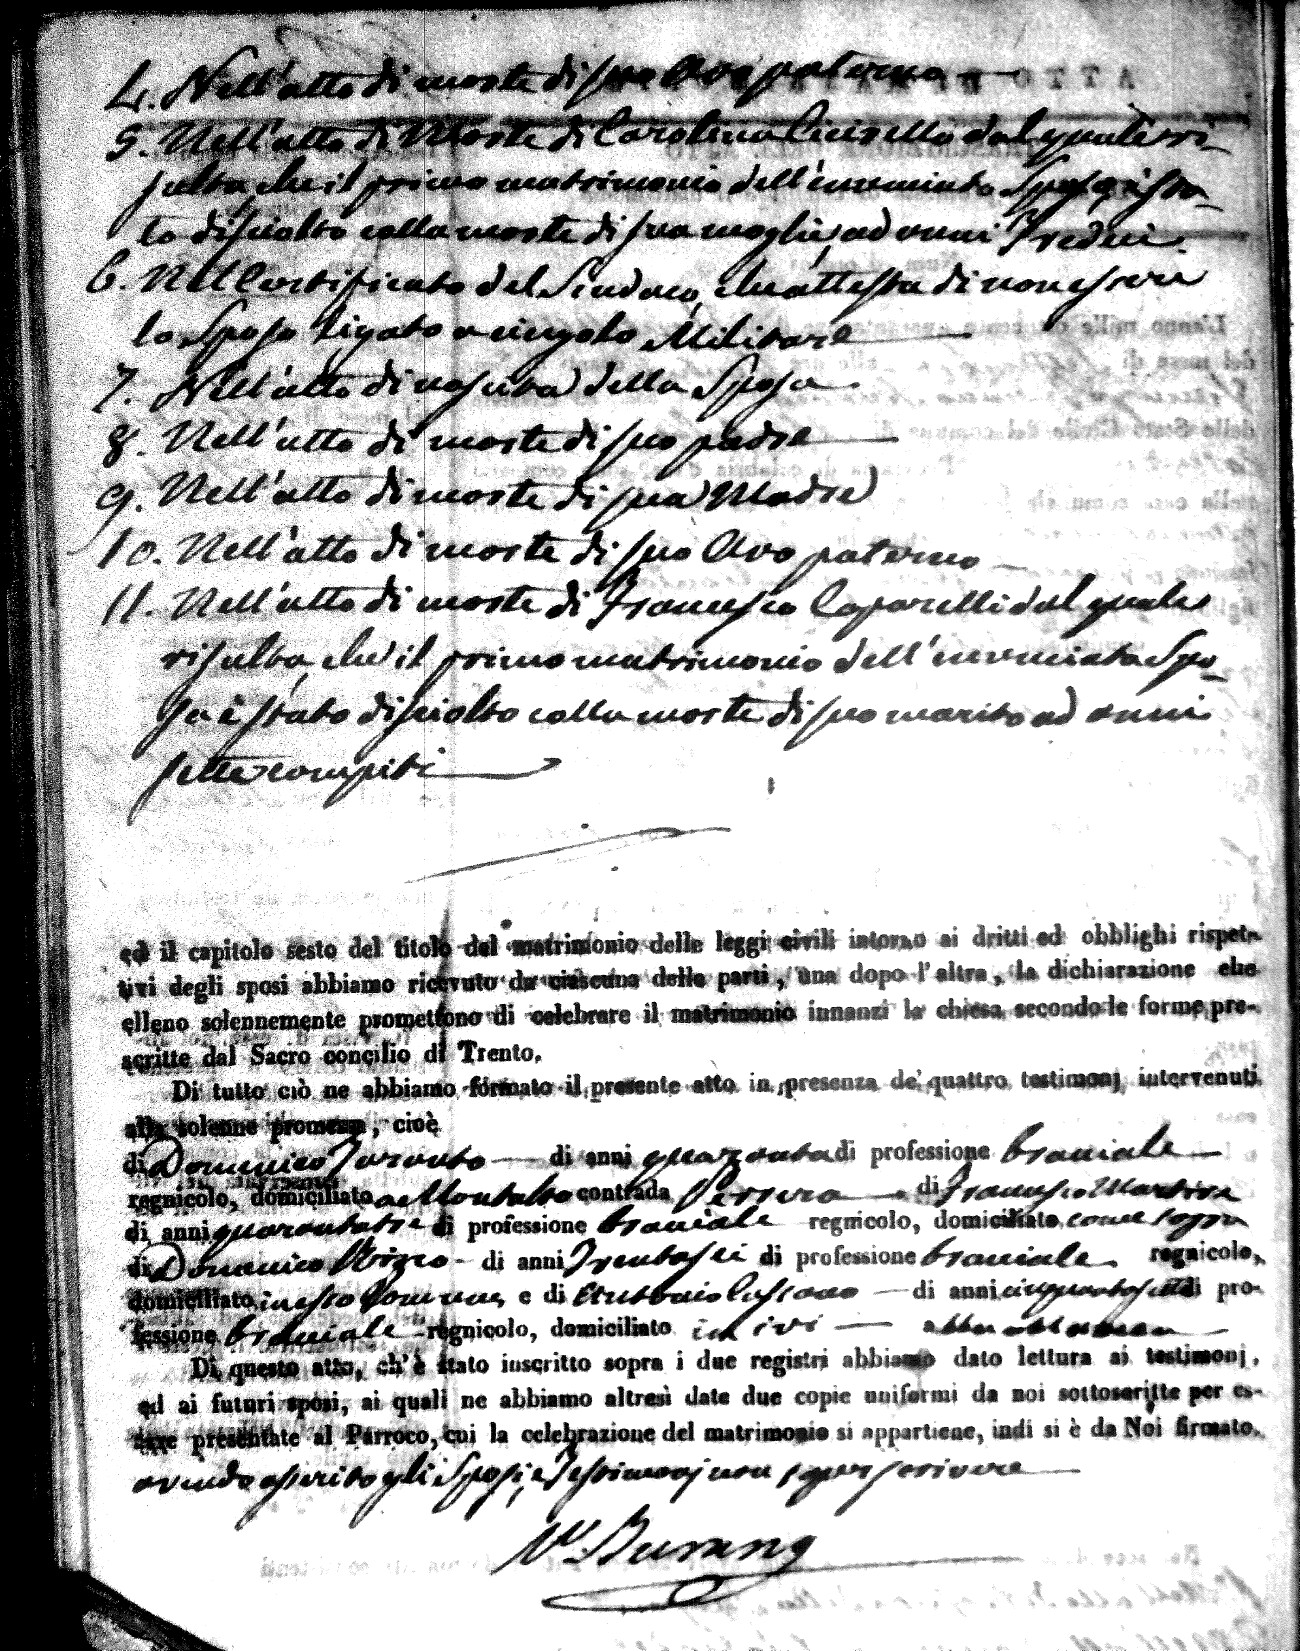 4. Nell'atto di morte di suo Avo paterno
5. Nell'atto di Morte di Carolina Cicirello dal quale ri-
sulta che il primo matrimonio dell'enunciato Sposo è sta-
to disciolto colla morte di sua moglie ad anni Tredici.
6. Nel Certificato del Sindaco, che attesta di non essere
lo Sposo ligato a cingolo Militare
7. Nell'atto di nascita della Sposa
8. Nell'atto di morte di suo padre
9. Nell'atto di morte di sua Madre
10. Nell'atto di morte di suo Avo paterno
11. Nell'atto di morte di Francesco Caparelli dal quale
risulta che il primo matrimonio dell'enunciata Spo-
sa è stato disciolto colla morte di suo marito ad anni
sette compiti
ed il capitolo sesto del titolo del matrimonio delle leggi civili intorno ai dritti ed obblighi rispet-
tivi degli sposi abbiamo ricevuto da ciascuna delle parti, una dopo l'altra, la dichiarazione che
elleno solennemente promettono di celebrare il matrimonio innanzi la chiesa secondo le forme pre-
scritte dal Sacro concilio di Trento.
Di tutto ciò ne abbiamo formato il presente atto in presenza de' quattro testimonj intervenuti
alla solenne promessa, cioè
di Domenico di anni quaranta di professione braciale
regnicolo, domiciliato a Montalto contrada di Francesco
di anni quarantatre di professione braciale regnicolo, domiciliato come sopra
di Domenico di anni Trentasei di professione braciale regnicolo,
domiciliato in esso Comune e di Antonio di anni cinquantasette di pro-
fessione braciale regnicolo, domiciliato ivi
Di questo atto, ch'è stato inscritto sopra i due registri abbiamo dato lettura ai testimonj,
ed ai futuri sposi, ai quali ne abbiamo altresì date due copie uniformi da noi sottoscritte per es-
sere presentate al Parroco, cui la celebrazione del matrimonio si appartiene, indi si è da Noi firmato.
avendo asserito gli Sposi, e Testimonj non saper scrivere